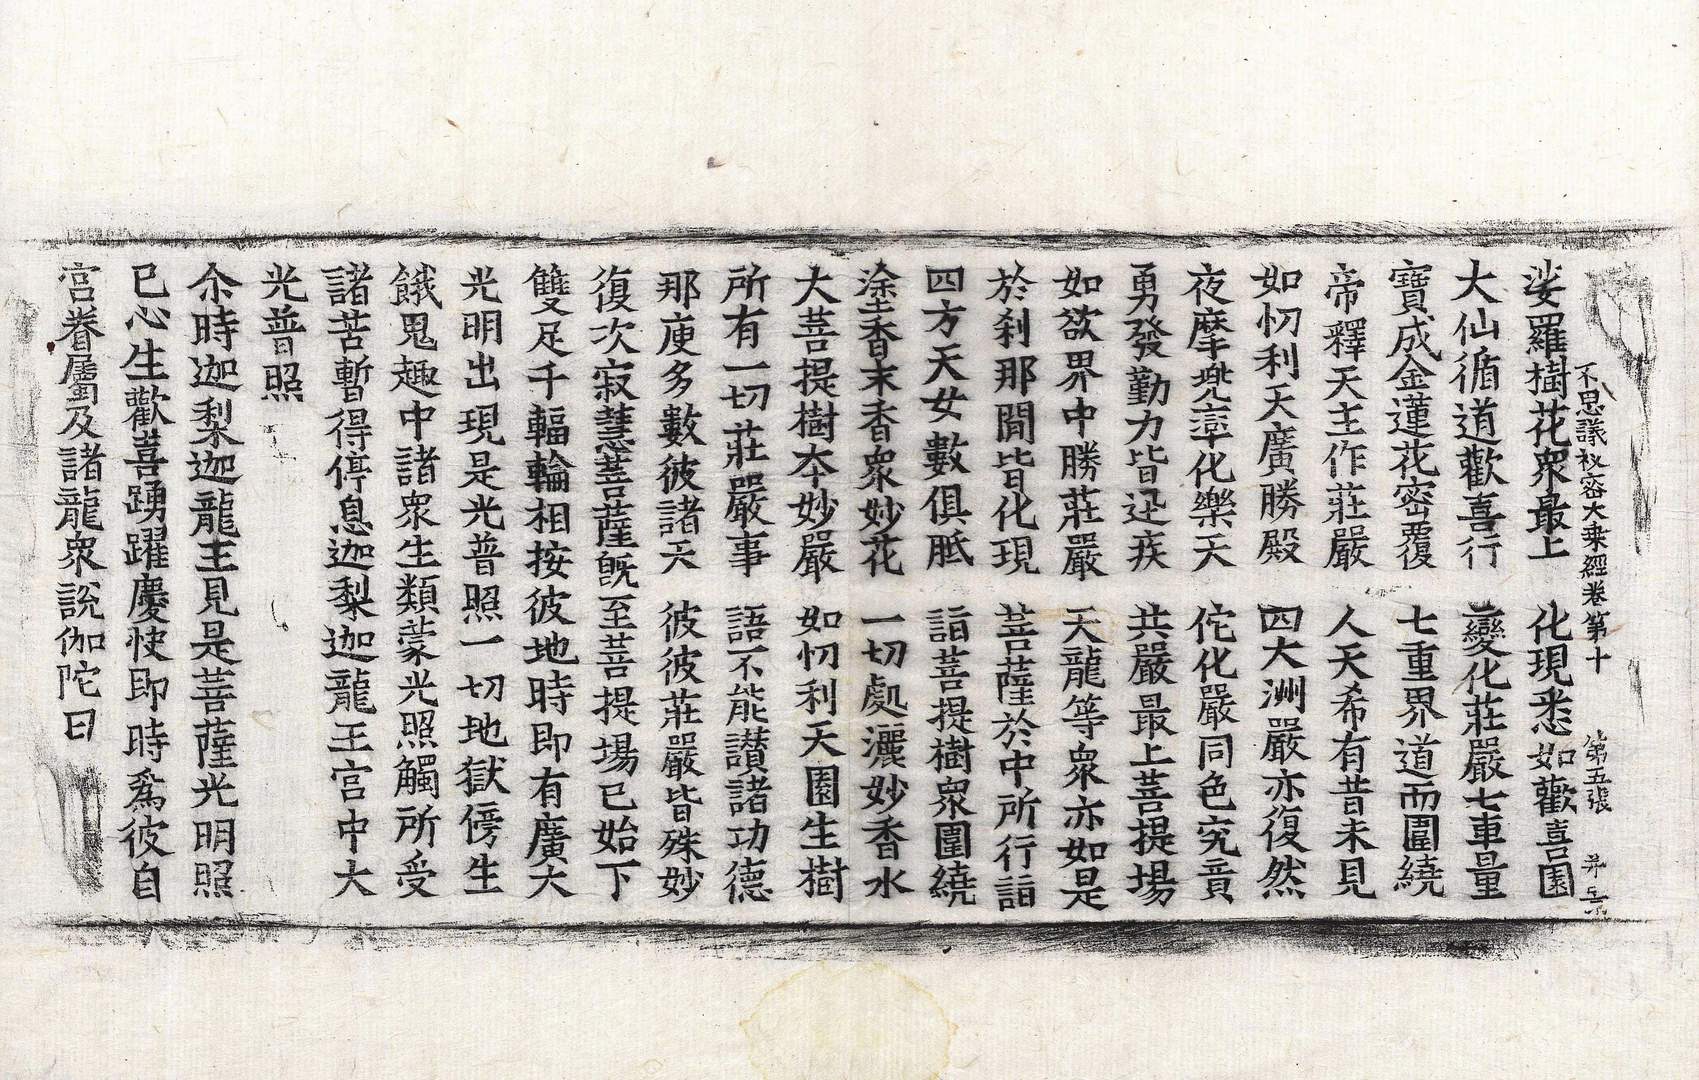 不思議祕密大乗經卷第十　第五張
娑羅樹花衆最上　化現悉如歡喜園
大仙循道歡喜行　變化莊嚴七車量
寶成金蓮花密覆　七重界道而圍繞
帝釋天主作莊嚴　人天希有昔未見
如忉利天廣勝殿　四大洲嚴亦復然
夜摩兠率化樂天　佗化嚴同色究竟
勇發勤力皆迅疾　共嚴最上菩提場
如欲界中勝莊嚴　天龍等衆亦如是
於刹那間皆化現　菩薩於中所行詣
四方天女數俱胝　詣菩提樹衆圍繞
塗香末香衆妙花　一切處灑妙香水
大菩提樹夲妙嚴　如忉利天園生樹
所有一切莊嚴事　語不能讃諸功德
那庾多數彼諸天　彼彼莊嚴皆殊妙
復次寂慧菩薩旣至菩提場已始下
雙足千輻輪相按彼地時即有廣大
光明出現是光普照一切地獄傍生
餓鬼趣中諸衆生類蒙光照觸所受
諸苦暫得停息迦梨迦龍王宮中大
光普照
尒時迦梨迦龍王見是菩薩光明照
已心生歡喜踴躍慶快即時爲彼自
宮眷屬及諸龍衆說伽陀曰